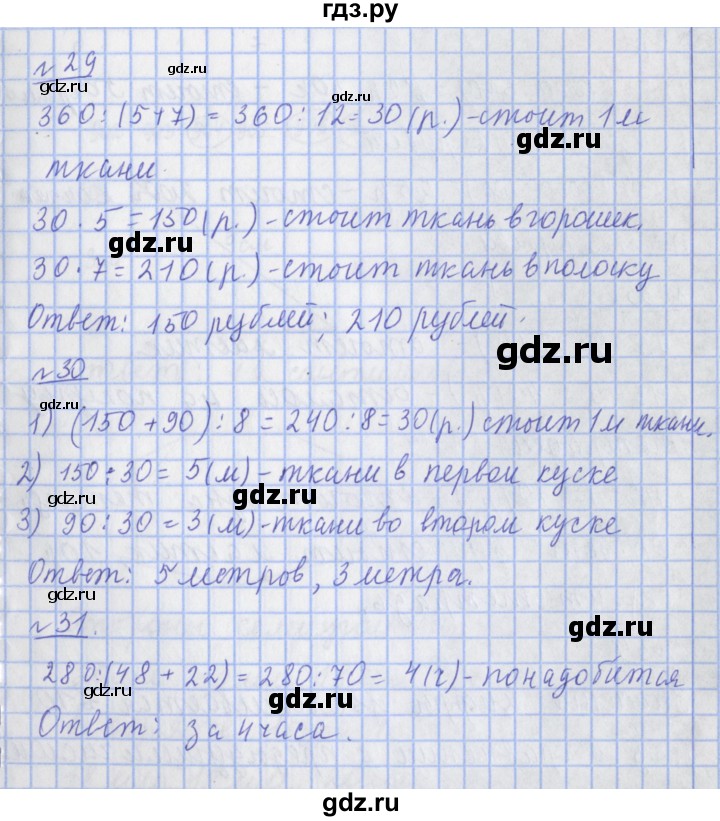 гдз.ру
№ 29
gdz.ru
gdz.ru
gdz.ru
360 : (5+7) = 360 : 12 = 30 (р.) - стоит 1 м
gdz.ru
ткани.
30 · 5 = 150 (р.) - стоит ткань в горошек.
gdz.ru
30 · 7 = 210 (р.) - стоит ткань в полоску
Ответ: 150 рублей; 210 рублей.
gdz.ru
№ 30
1) (150 + 90) : 8 = 240 : 8 = 30 (р.) стоит 1 м ткани.
2) 150 : 30 = 5 (м) - ткани в первом куске
gdz.ru
gdz.ru
3) 90 : 30 = 3 (м) - ткани во втором куске
Ответ: 5 метров, 3 метра.
№ 31.
gdz.ru
280 : (48 + 22) = 280 : 70 = 4 (ч) - понадобится
gdz.ru
gdz.ru
Ответ: за 4 часа.
gdz.ru